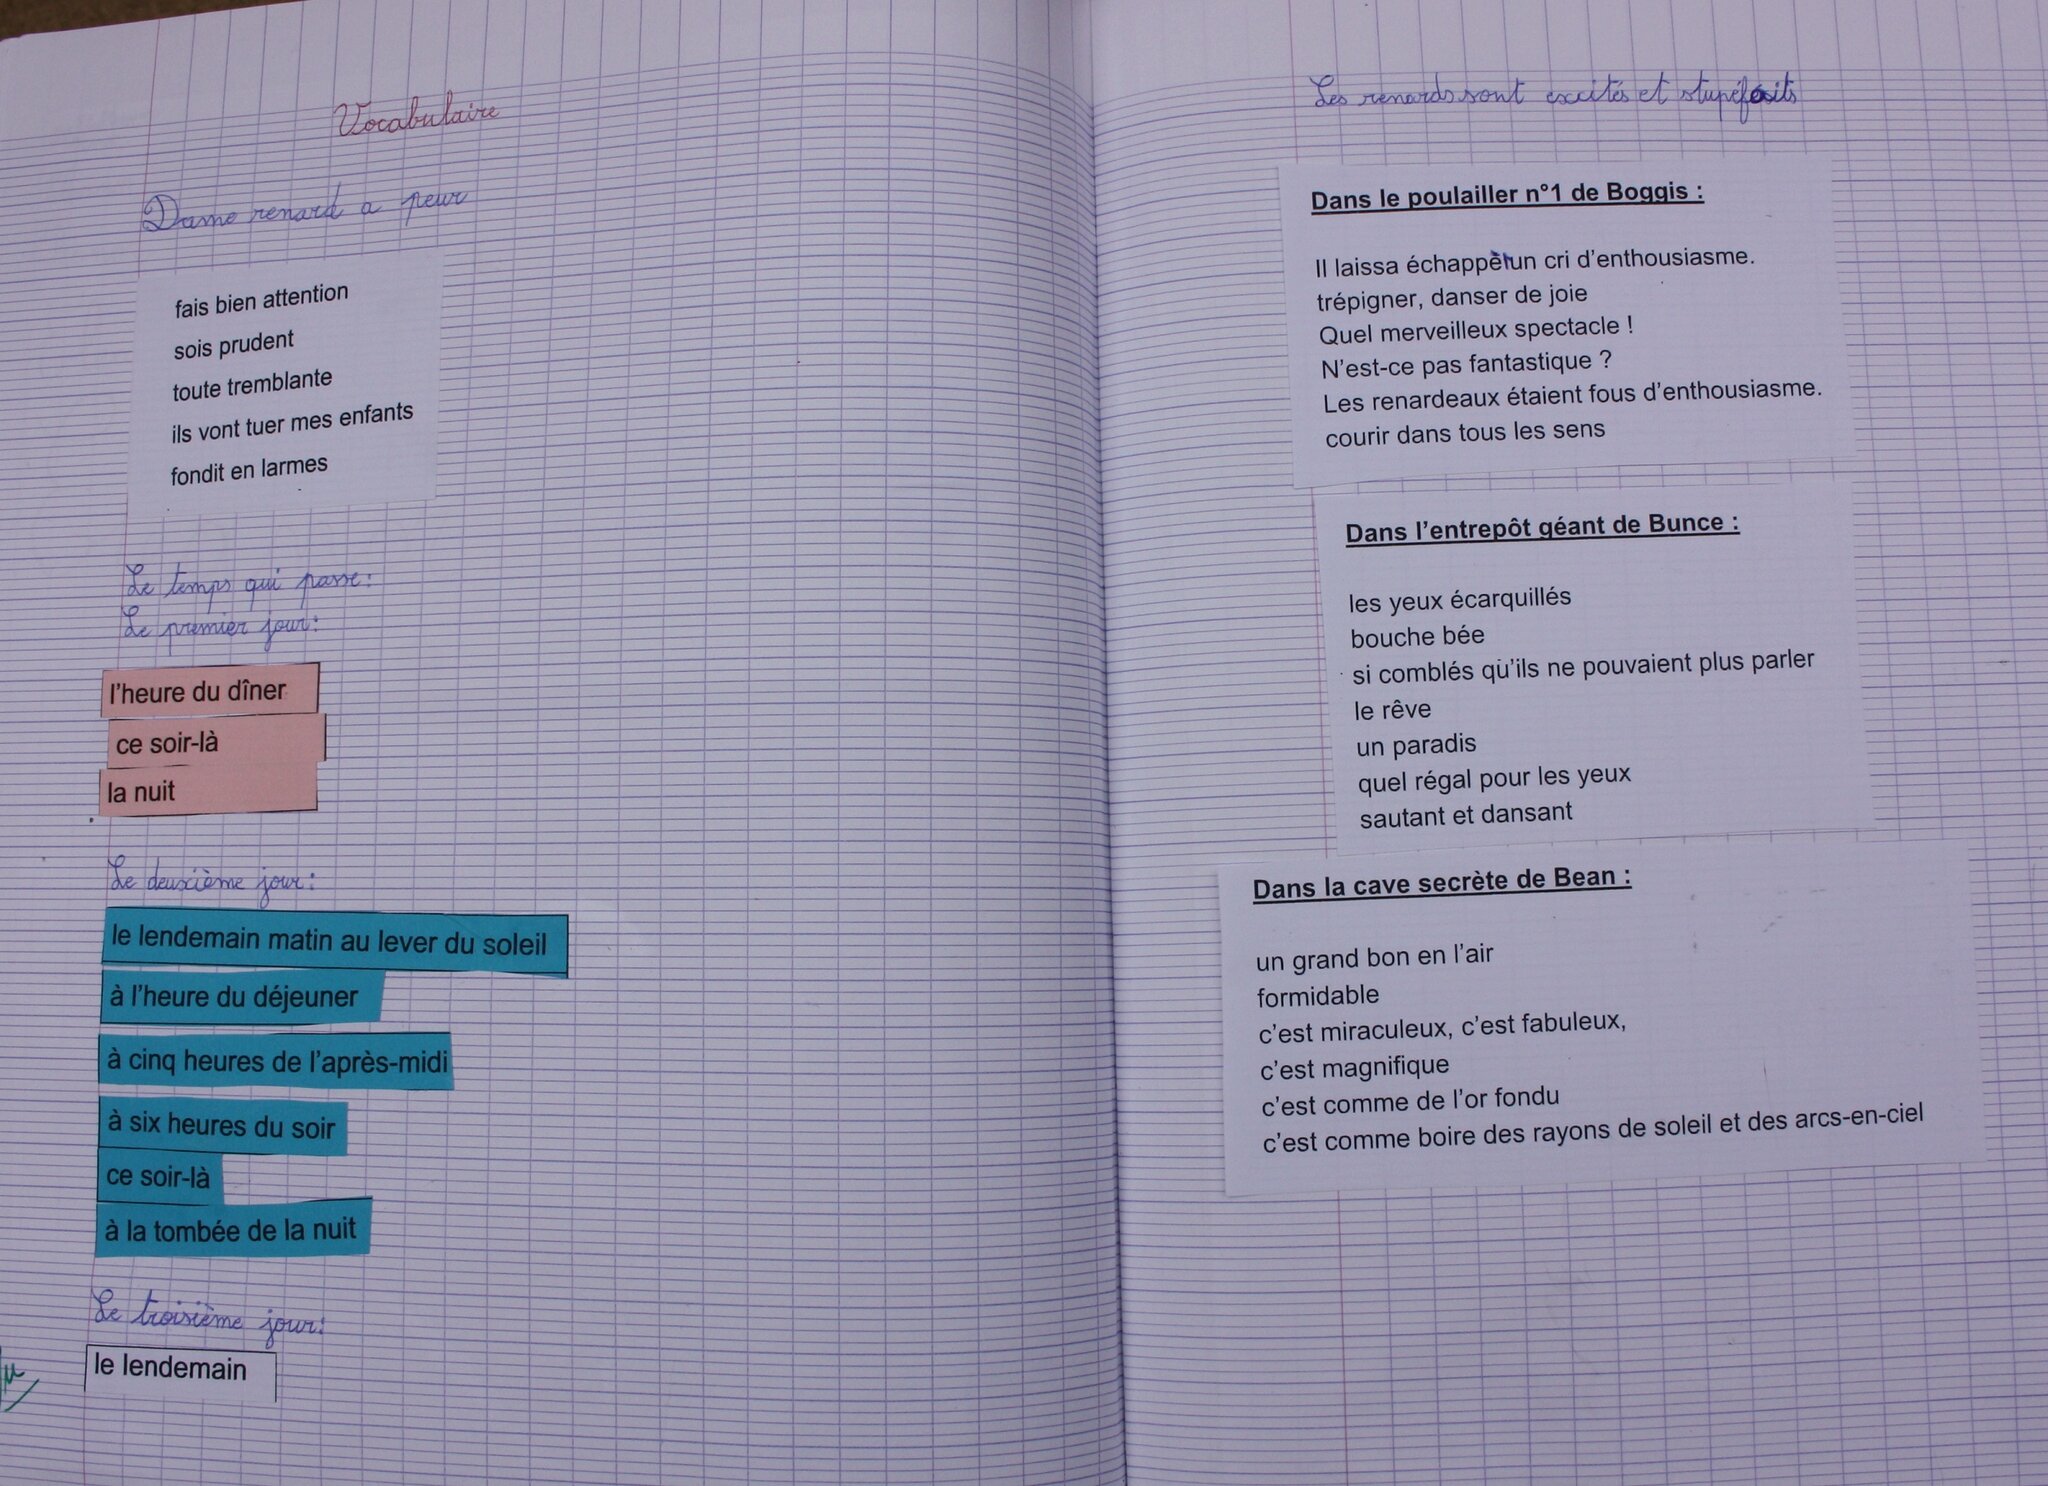 Vocabulaire
Dame renard a peur
fais bien attention
sois prudent
toute tremblante
ils vont tuer mes enfants
fondit en larmes
Le temps qui passe:
Le premier jour:
l'heure du dîner
ce soir-là
la nuit
Le deuxième jour:
le lendemain matin au lever du soleil
à l'heure du déjeuner
à cinq heures de l'après-midi
à six heures du soir
ce soir-là
à la tombée de la nuit
Le troisième jour:
le lendemain
Les renards sont excités et stupéfaits
Dans le poulailler n°1 de Boggis :
Il laissa échapper un cri d'enthousiasme.
trépigner, danser de joie
Quel merveilleux spectacle !
N'est-ce pas fantastique ?
Les renardeaux étaient fous d'enthousiasme.
courir dans tous les sens
Dans l'entrepôt géant de Bunce :
les yeux écarquillés
bouche bée
si comblés qu'ils ne pouvaient plus parler
le rêve
un paradis
quel régal pour les yeux
sautant et dansant
Dans la cave secrète de Bean :
un grand bon en l'air
formidable
c'est miraculeux, c'est fabuleux,
c'est magnifique
c'est comme de l'or fondu
c'est comme boire des rayons de soleil et des arcs-en-ciel